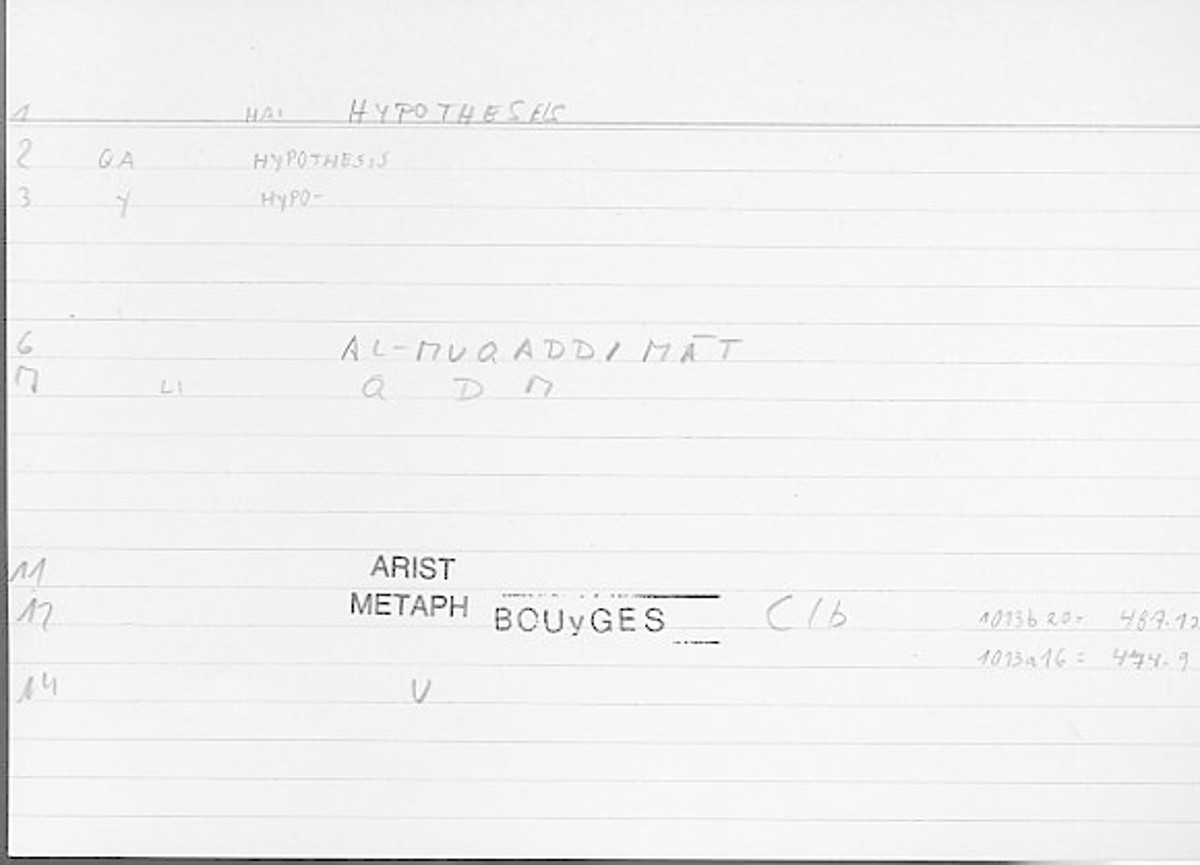 1 HAI HYPOTHESEIS
2 QA HYPOTHESIS
3 Y HYPO-
6 AL-MUQADDIMĀT
7 LI Q D M
11 ARIST
12 METAPH BOUyGES C/b 1013b20= 487.12
1013a16= 474.9
14 V